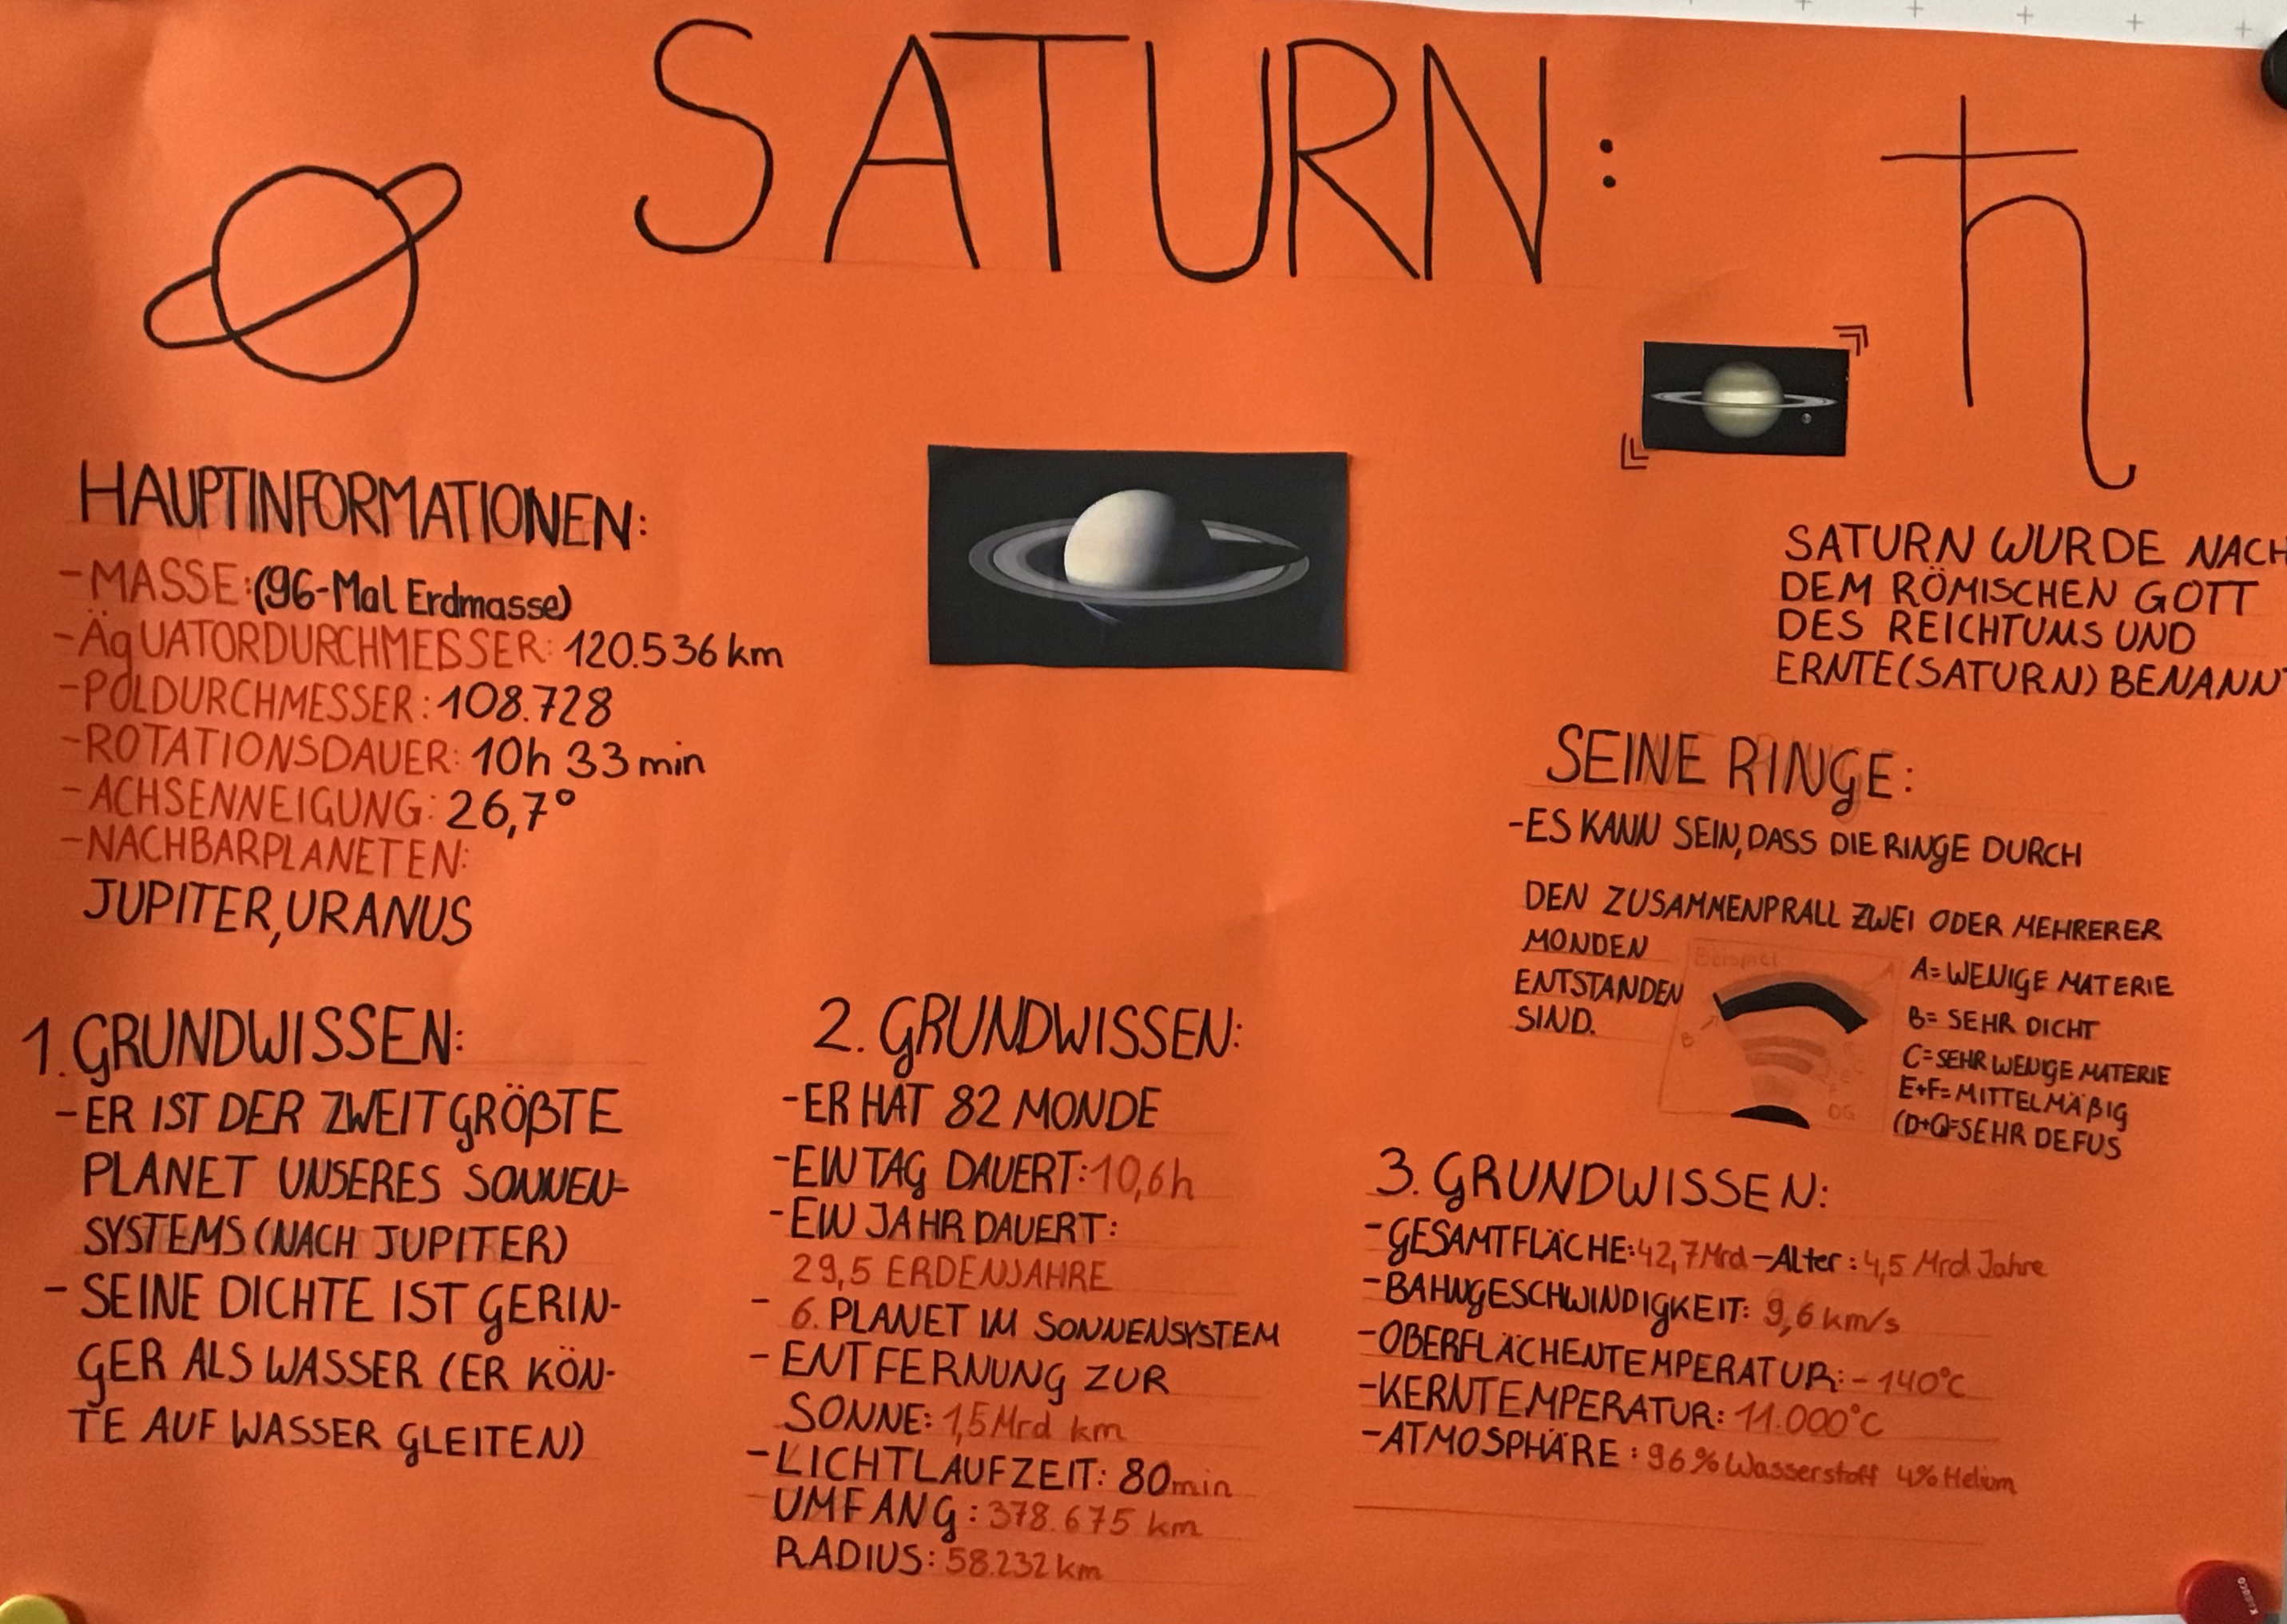 SATURN:
HAUPTINFORMATIONEN:
-MASSE:(96-Mal Erdmasse)
-ÄQUATORDURCHMESSER: 120.536 km
-POLDURCHMESSER: 108.728
-ROTATIONSDAUER: 10h 33 min
-ACHSENNEIGUNG: 26,7°
-NACHBARPLANETEN:
JUPITER, URANUS
SATURN WURDE NACH
DEM RÖMISCHEN GOTT
DES REICHTUMS UND
ERNTE (SATURN) BENANNT
SEINE RINGE:
-ES KANN SEIN, DASS DIE RINGE DURCH
DEN ZUSAMMENPRALL ZWEI ODER MEHRERER
MONDEN
ENTSTANDEN
SIND.
Beispiel
A
B
A=WENIGE MATERIE
B= SEHR DICHT
C=SEHR WENIGE MATERIE
E+F=MITTELMÄßIG
(D+G)=SEHR DEFUS
1. GRUNDWISSEN:
-ER IST DER ZWEITGRÖßTE
PLANET UNSERES SONNEN-
SYSTEMS (NACH JUPITER)
- SEINE DICHTE IST GERIN-
GER ALS WASSER (ER KÖN-
TE AUF WASSER GLEITEN)
2. GRUNDWISSEN:
-ER HAT 82 MONDE
-EIN TAG DAUERT: 10,6h
-EIN JAHR DAUERT:
29,5 ERDENJAHRE
- 6. PLANET IM SONNENSYSTEM
- ENTFERNUNG ZUR
SONNE: 1,5 Mrd km
-LICHTLAUFZEIT: 80min
-UMFANG: 378.675 km
RADIUS: 58.232 km
3. GRUNDWISSEN:
-GESAMTFLÄCHE: 42,7 Mrd -Alter: 4,5 Mrd Jahre
-BAHNGESCHWINDIGKEIT: 9,6 km/s
-OBERFLÄCHENTEMPERATUR: -140°C
-KERNTEMPERATUR: 11.000°C
-ATMOSPHÄRE: 96% Wasserstoff 4% Helium